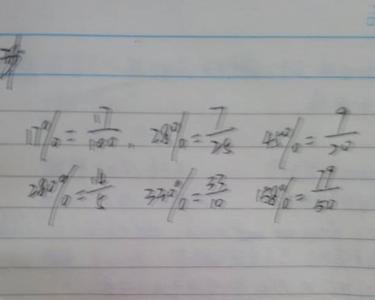 17%=17/100, 28%=7/25 45%=9/20
280%=14/5 330%=33/10 158%=79/50